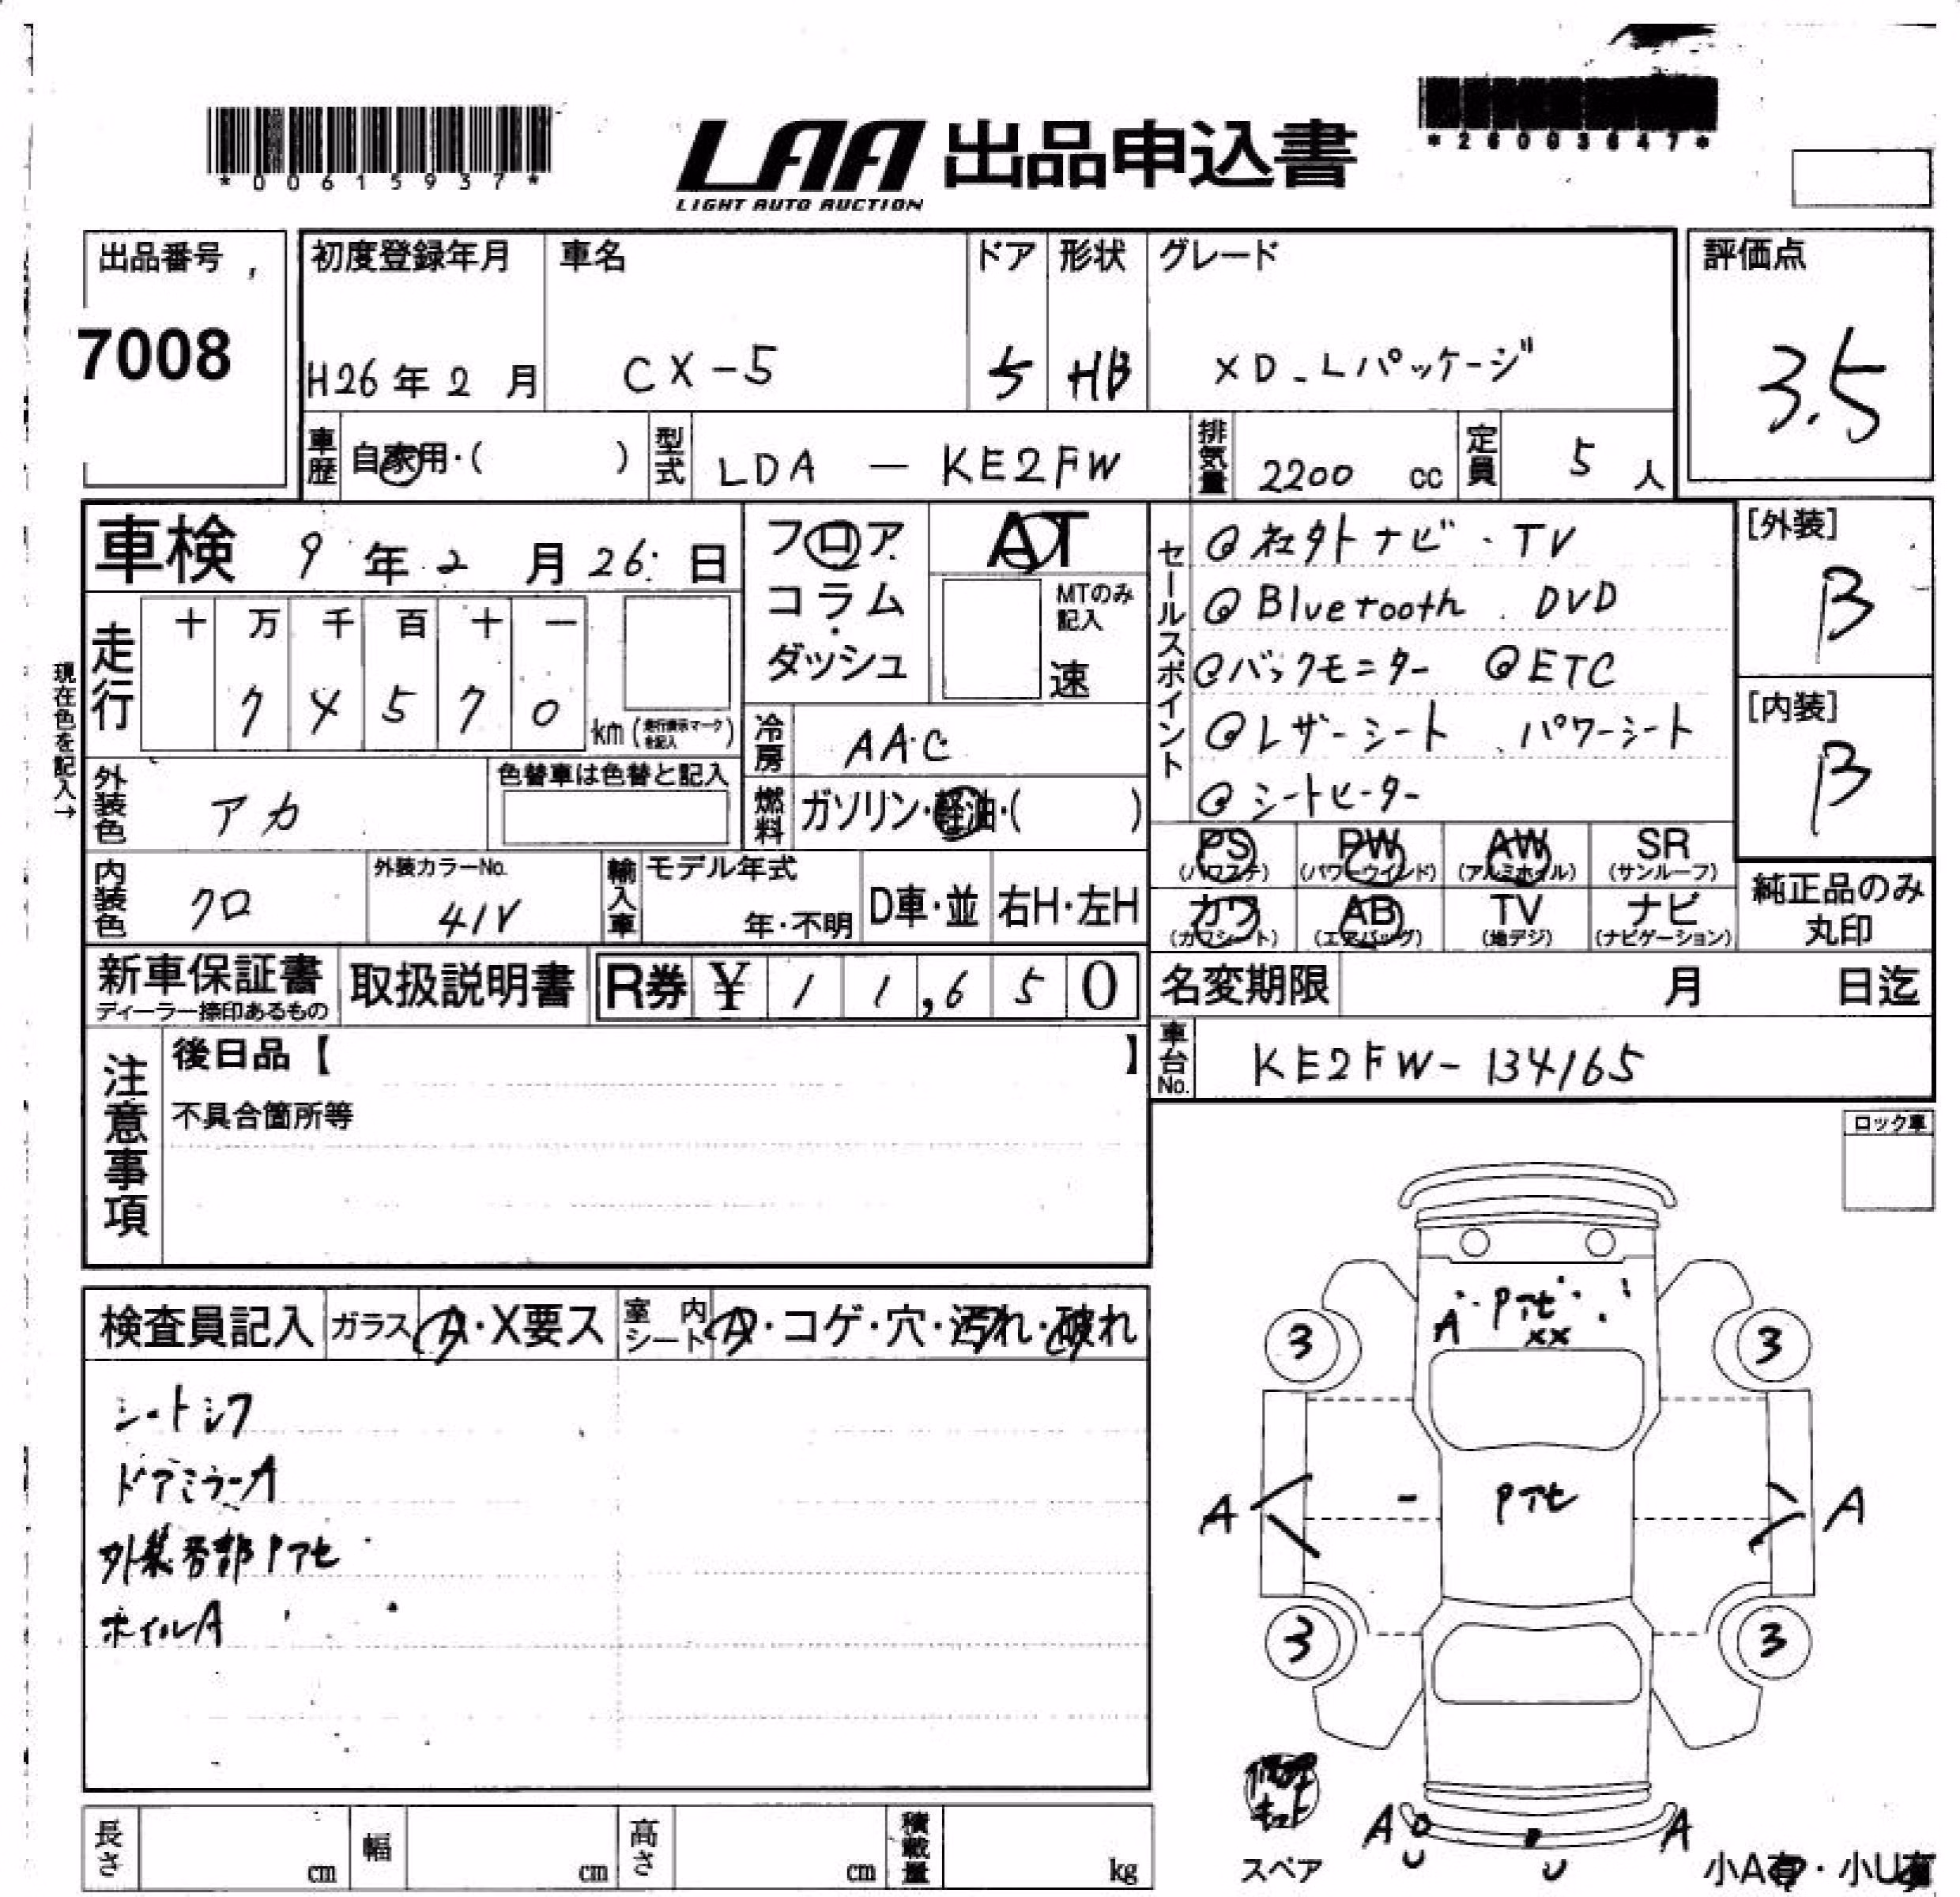 *00615937*
LAA 出品申込書
LIGHT AUTO AUCTION
*26003647*
出品番号
7008
初度登録年月
H26年2月
車名
CX-5
ドア
5
形状
HB
グレード
XD-Lパッケージ
評価点
3.5
車歴 自家用・( )
型式 LDA-KE2FW
排気量 2200 cc
定員 5人
車検 9年2月26日
フロア
コラム
ダッシュ
AT
MTのみ記入
速
セールスポイント
@社外ナビ・TV
@Bluetooth . DVD
@バックモニター @ETC
@レザーシート . パワーシート
@シートヒーター
[外装]
B
[内装]
B
現在色を記入→
走行
十 万 千 百 十 一
7 4 5 7 0
km(走行表示マークを記入)
冷房 AAC
燃料 ガソリン・軽油・( )
外装色 アカ
色替車は色替と記入
内装色 クロ
外装カラーNo.
41V
輸入車
モデル年式
年・不明
D車・並
右H・左H
PS
(パワステ)
PW
(パワーウインド)
AW
(アルミホイル)
SR
(サンルーフ)
カワ
(カワシート)
AB
(エアバッグ)
TV
(地デジ)
ナビ
(ナビゲーション)
純正品のみ
丸印
新車保証書
ディーラー捺印あるもの
取扱説明書
R券 ¥ 11,650
名変期限 月 日迄
車台No. KE2FW-134165
注意事項
後日品【 】
不具合箇所等
ロック車
検査員記入
ガラス A・X要ス
室内シート A・コゲ・穴・汚れ・破れ
シートシワ
ドアミラーA
外装各部Pアセ
ホイルA
A Pアセ
XX
3 3
Pアセ
A A
3 3
修理キット
スペア
A U
U
A
小A有・小U有
長さ cm
幅 cm
高さ cm
積載量 kg